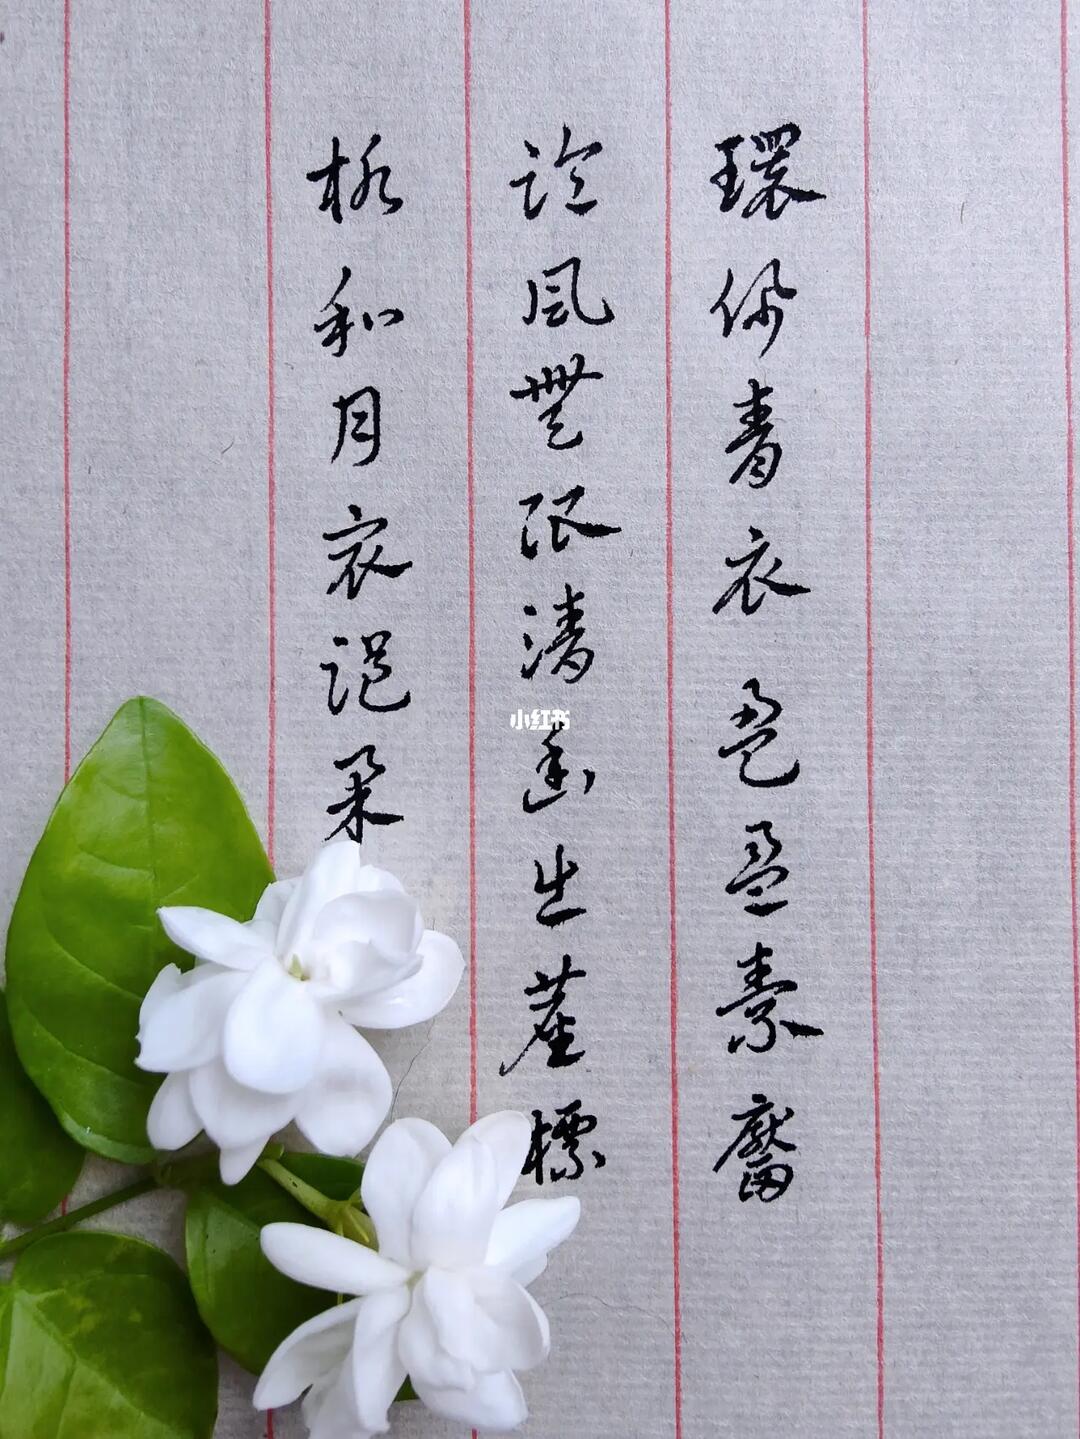 環佩青衣盈盈素靨
臨風無限清幽出塵標
格和月最溫柔
小红书